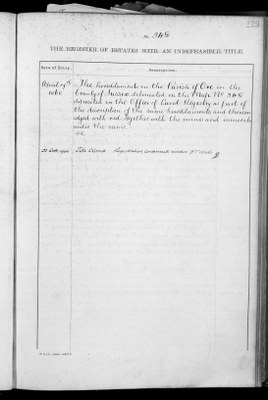 No. 348
THE REGISTER OF ESTATES WITH AN INDEFEASIBLE TITLE.
Date of Entry.
Description.
April 19th
The hereditament in the Parish of Ore in the
County of Sussex delineated on the Map No 348
deposited in the Office of Land Registry as part of
the description of the same hereditaments and thereon
edged with red together with the mines and minerals
under the same.
Title closed. Registration continued under